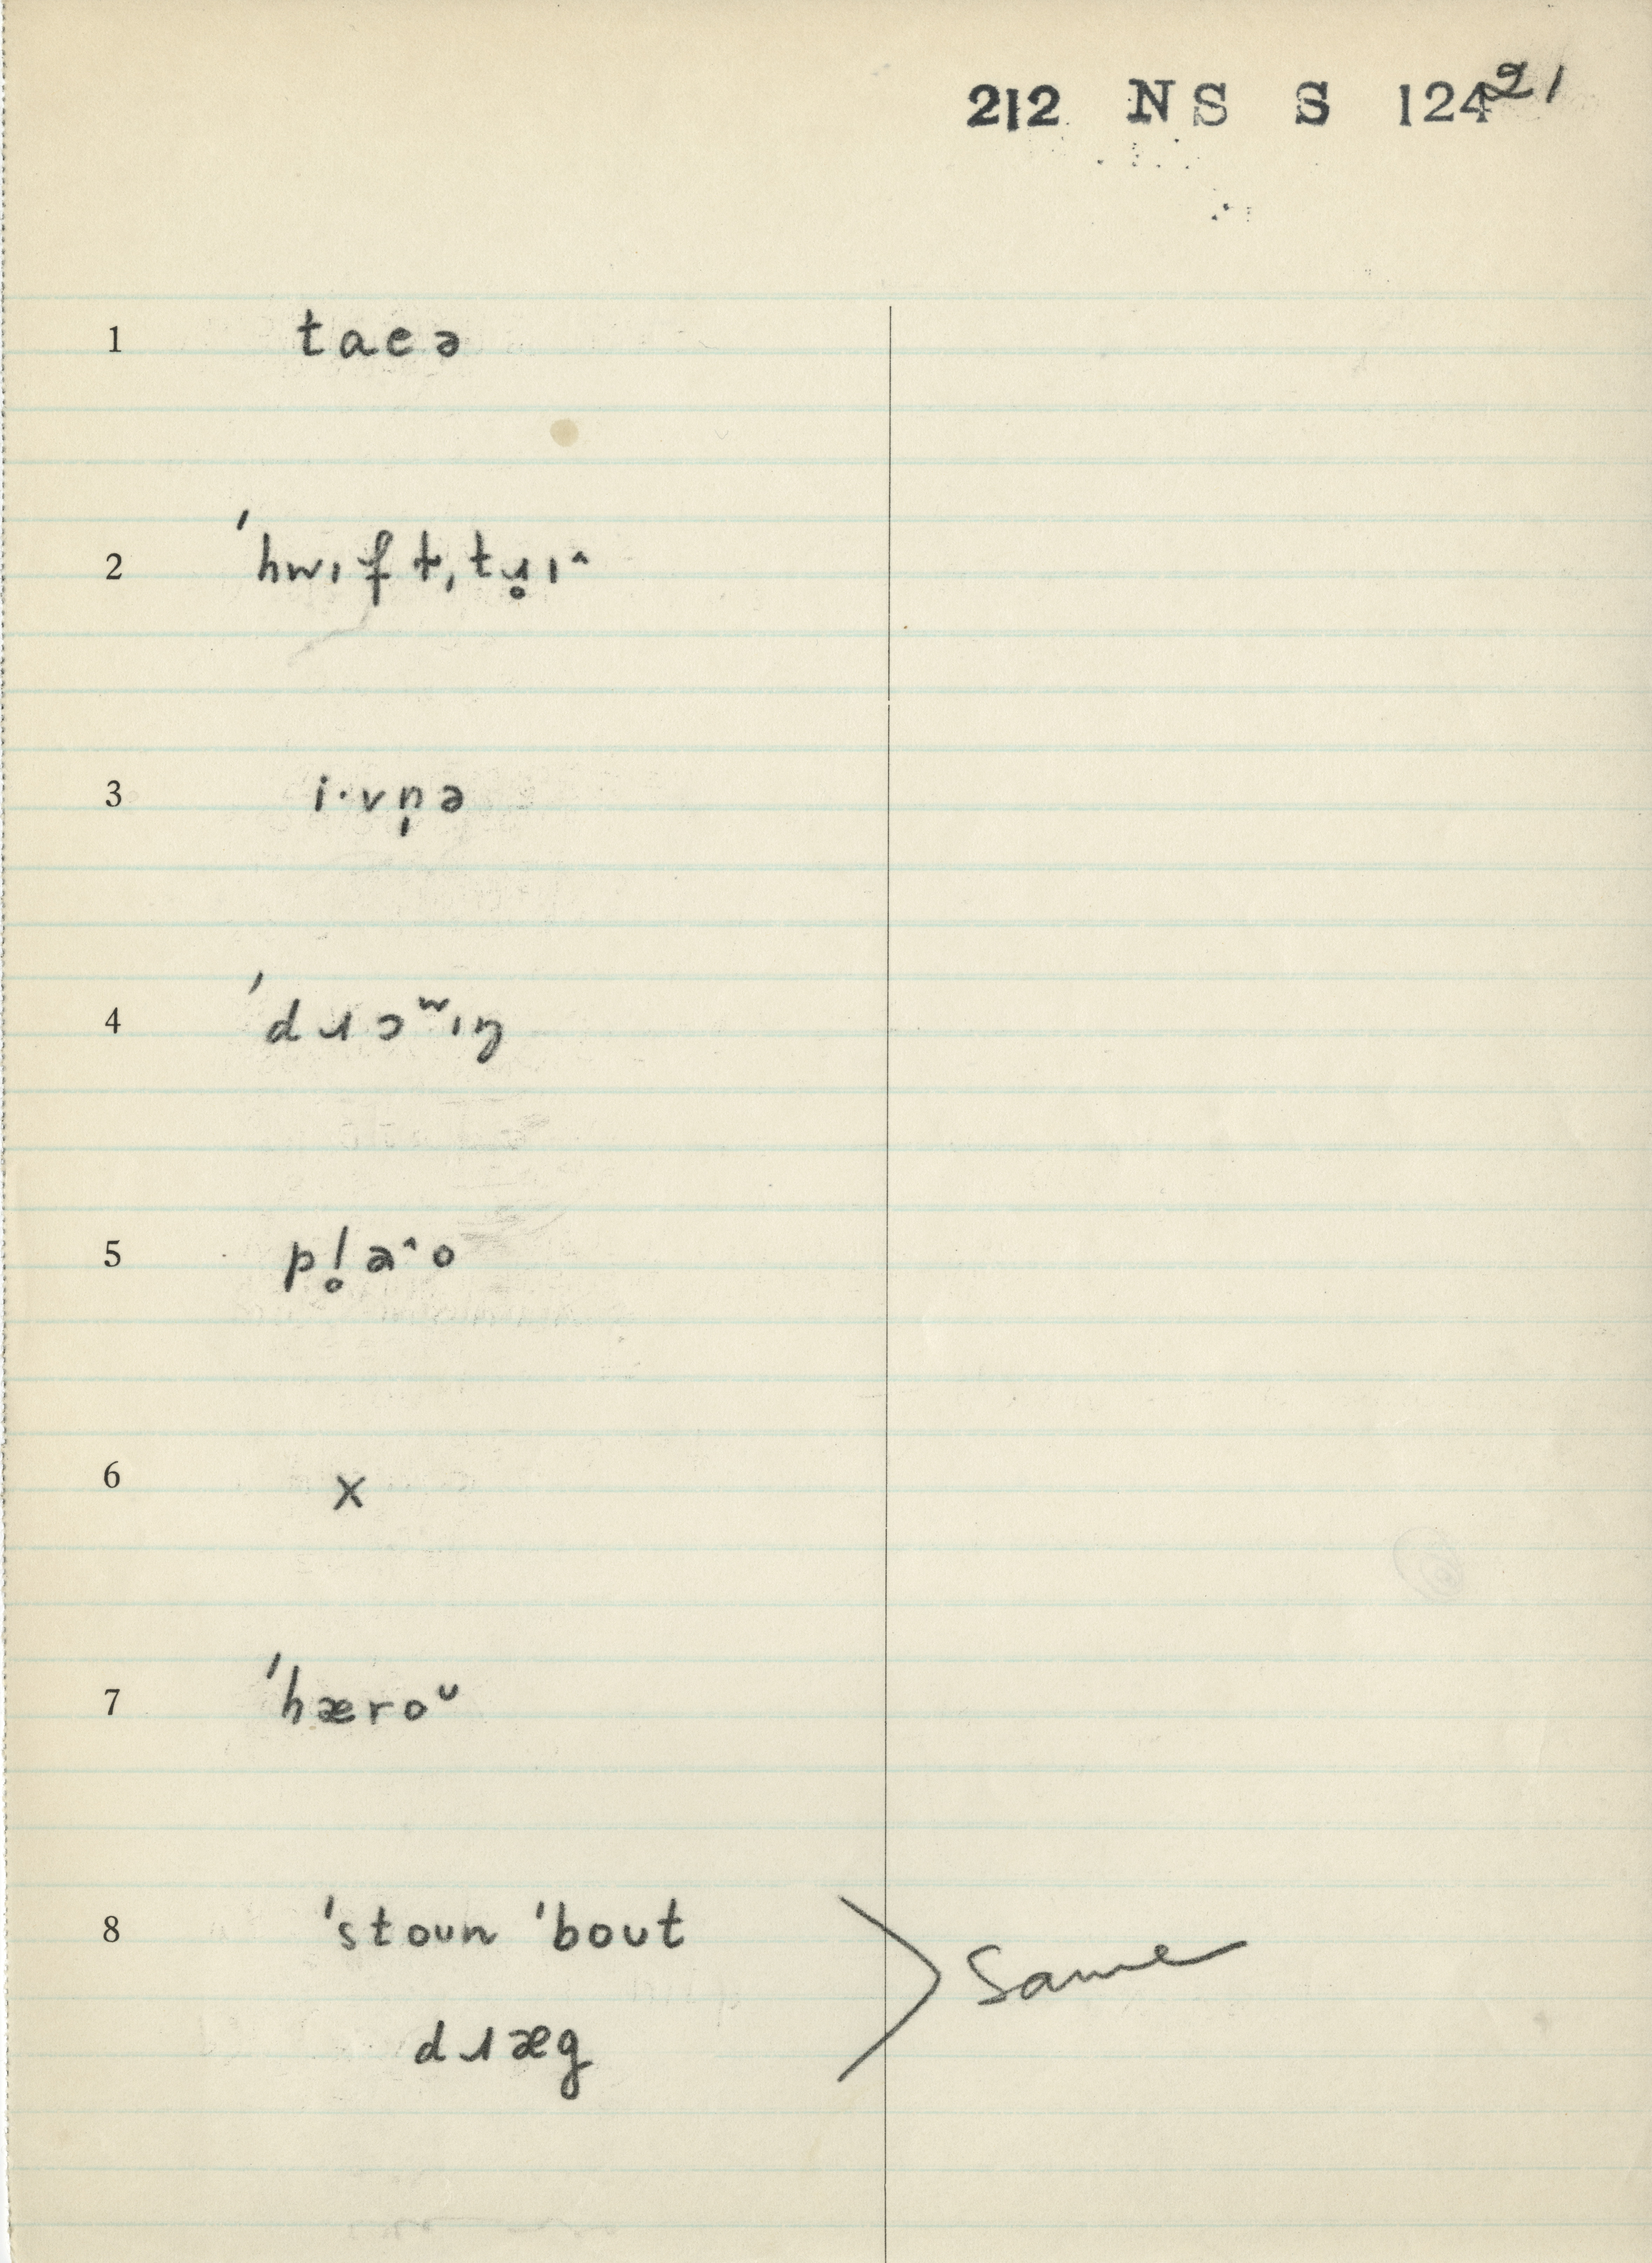 212 NS S 124 21
1 taeə
2 ˈhwɪft̬ˌtɹ̥ɪ^
3 i·vn̩ə
4 ˈdɹɔʷɪŋ
5 pl̥a^o
6 x
7 ˈhæroᵘ
8 ˈstoun ˈbout
same
dɹæg